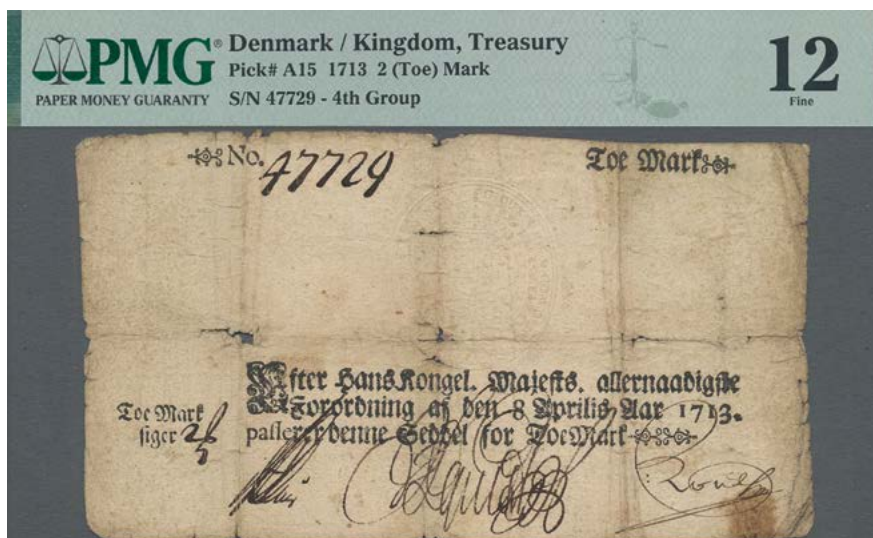 PMG® Denmark / Kingdom, Treasury
Pick# A15 1713 2 (Toe) Mark
PAPER MONEY GUARANTY S/N 47729 - 4th Group
12
Fine
No. 47729 Toe Mark
Efter Hans Kongel. Majests. allernaadigste
Forordning af den 8 Aprilis Aar 1713.
passerer denne Seddel for Toe Mark
Toe Mark
siger 2